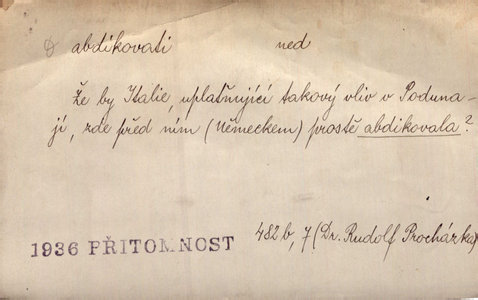 abdikovati ned
Že by Italie, uplatňující takový vliv v Poduna-
jí, zde před ním (Německem) prostě abdikovala?
482b, 7 (Dr. Rudolf Procházka)
1936 PŘÍTOMNOST